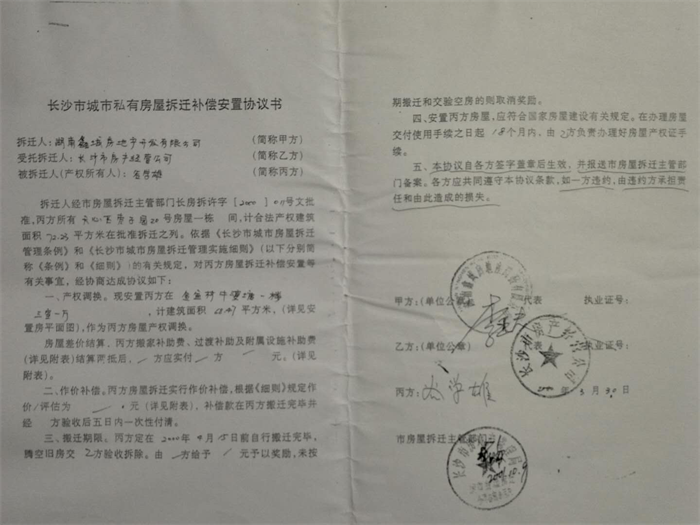 长沙市城市私有房屋拆迁补偿安置协议书
拆迁人：湖南鑫城房地产开发有限公司 （简称甲方）
受托拆迁人：长沙市房产经营公司 （简称乙方）
被拆迁人（产权所有人）： （简称丙方）
拆迁人经市房屋拆迁主管部门长房拆许字〔2000〕 号文批
准，丙方所有 号房屋一栋 间，计合法产权建筑
面积 平方米在批准拆迁之列。依据《长沙市城市房屋拆迁
管理条例》和《长沙市城市房屋拆迁管理实施细则》（以下分别简
称《条例》和《细则》）的有关规定，对丙方房屋拆迁补偿安置等
有关事宜，经协商达成协议如下：
一、产权调换。现安置丙方在
，计建筑面积 平方米，（详见安
置房平面图），作为丙方房屋产权调换。
房屋差价结算、丙方搬家补助费、过渡补助及附属设施补助费
（详见附表）结算两抵后， 方应实付 方 元。（详见
附表）。
二、作价补偿。丙方房屋拆迁实行作价补偿，根据《细则》规定作
价/评估为 元（详见附表），补偿款在丙方搬迁完毕并
经 方验收后五日内一次性付清。
三、搬迁期限。丙方定在2000年4月15日前自行搬迁完毕，
腾空旧房交乙方验收拆除。由 方给予 元予以奖励，未按
期搬迁和交验空房的则取消奖励。
四、安置丙方房屋，应符合国家房屋建设有关规定。在办理房屋
交付使用手续之日起18个月内、由乙方负责办理好房屋产权证手
续。
五、本协议自各方签字盖章后生效，并报送市房屋拆迁主管部
门备案。各方应共同遵守本协议条款，如一方违约，由违约方承担责
任和由此造成的损失。
甲方：（单位公章） 代表 执业证号：
乙方：（单位公章） 代表 执业证号：
丙方： 学雄 年3月30日
市房屋拆迁主管部门